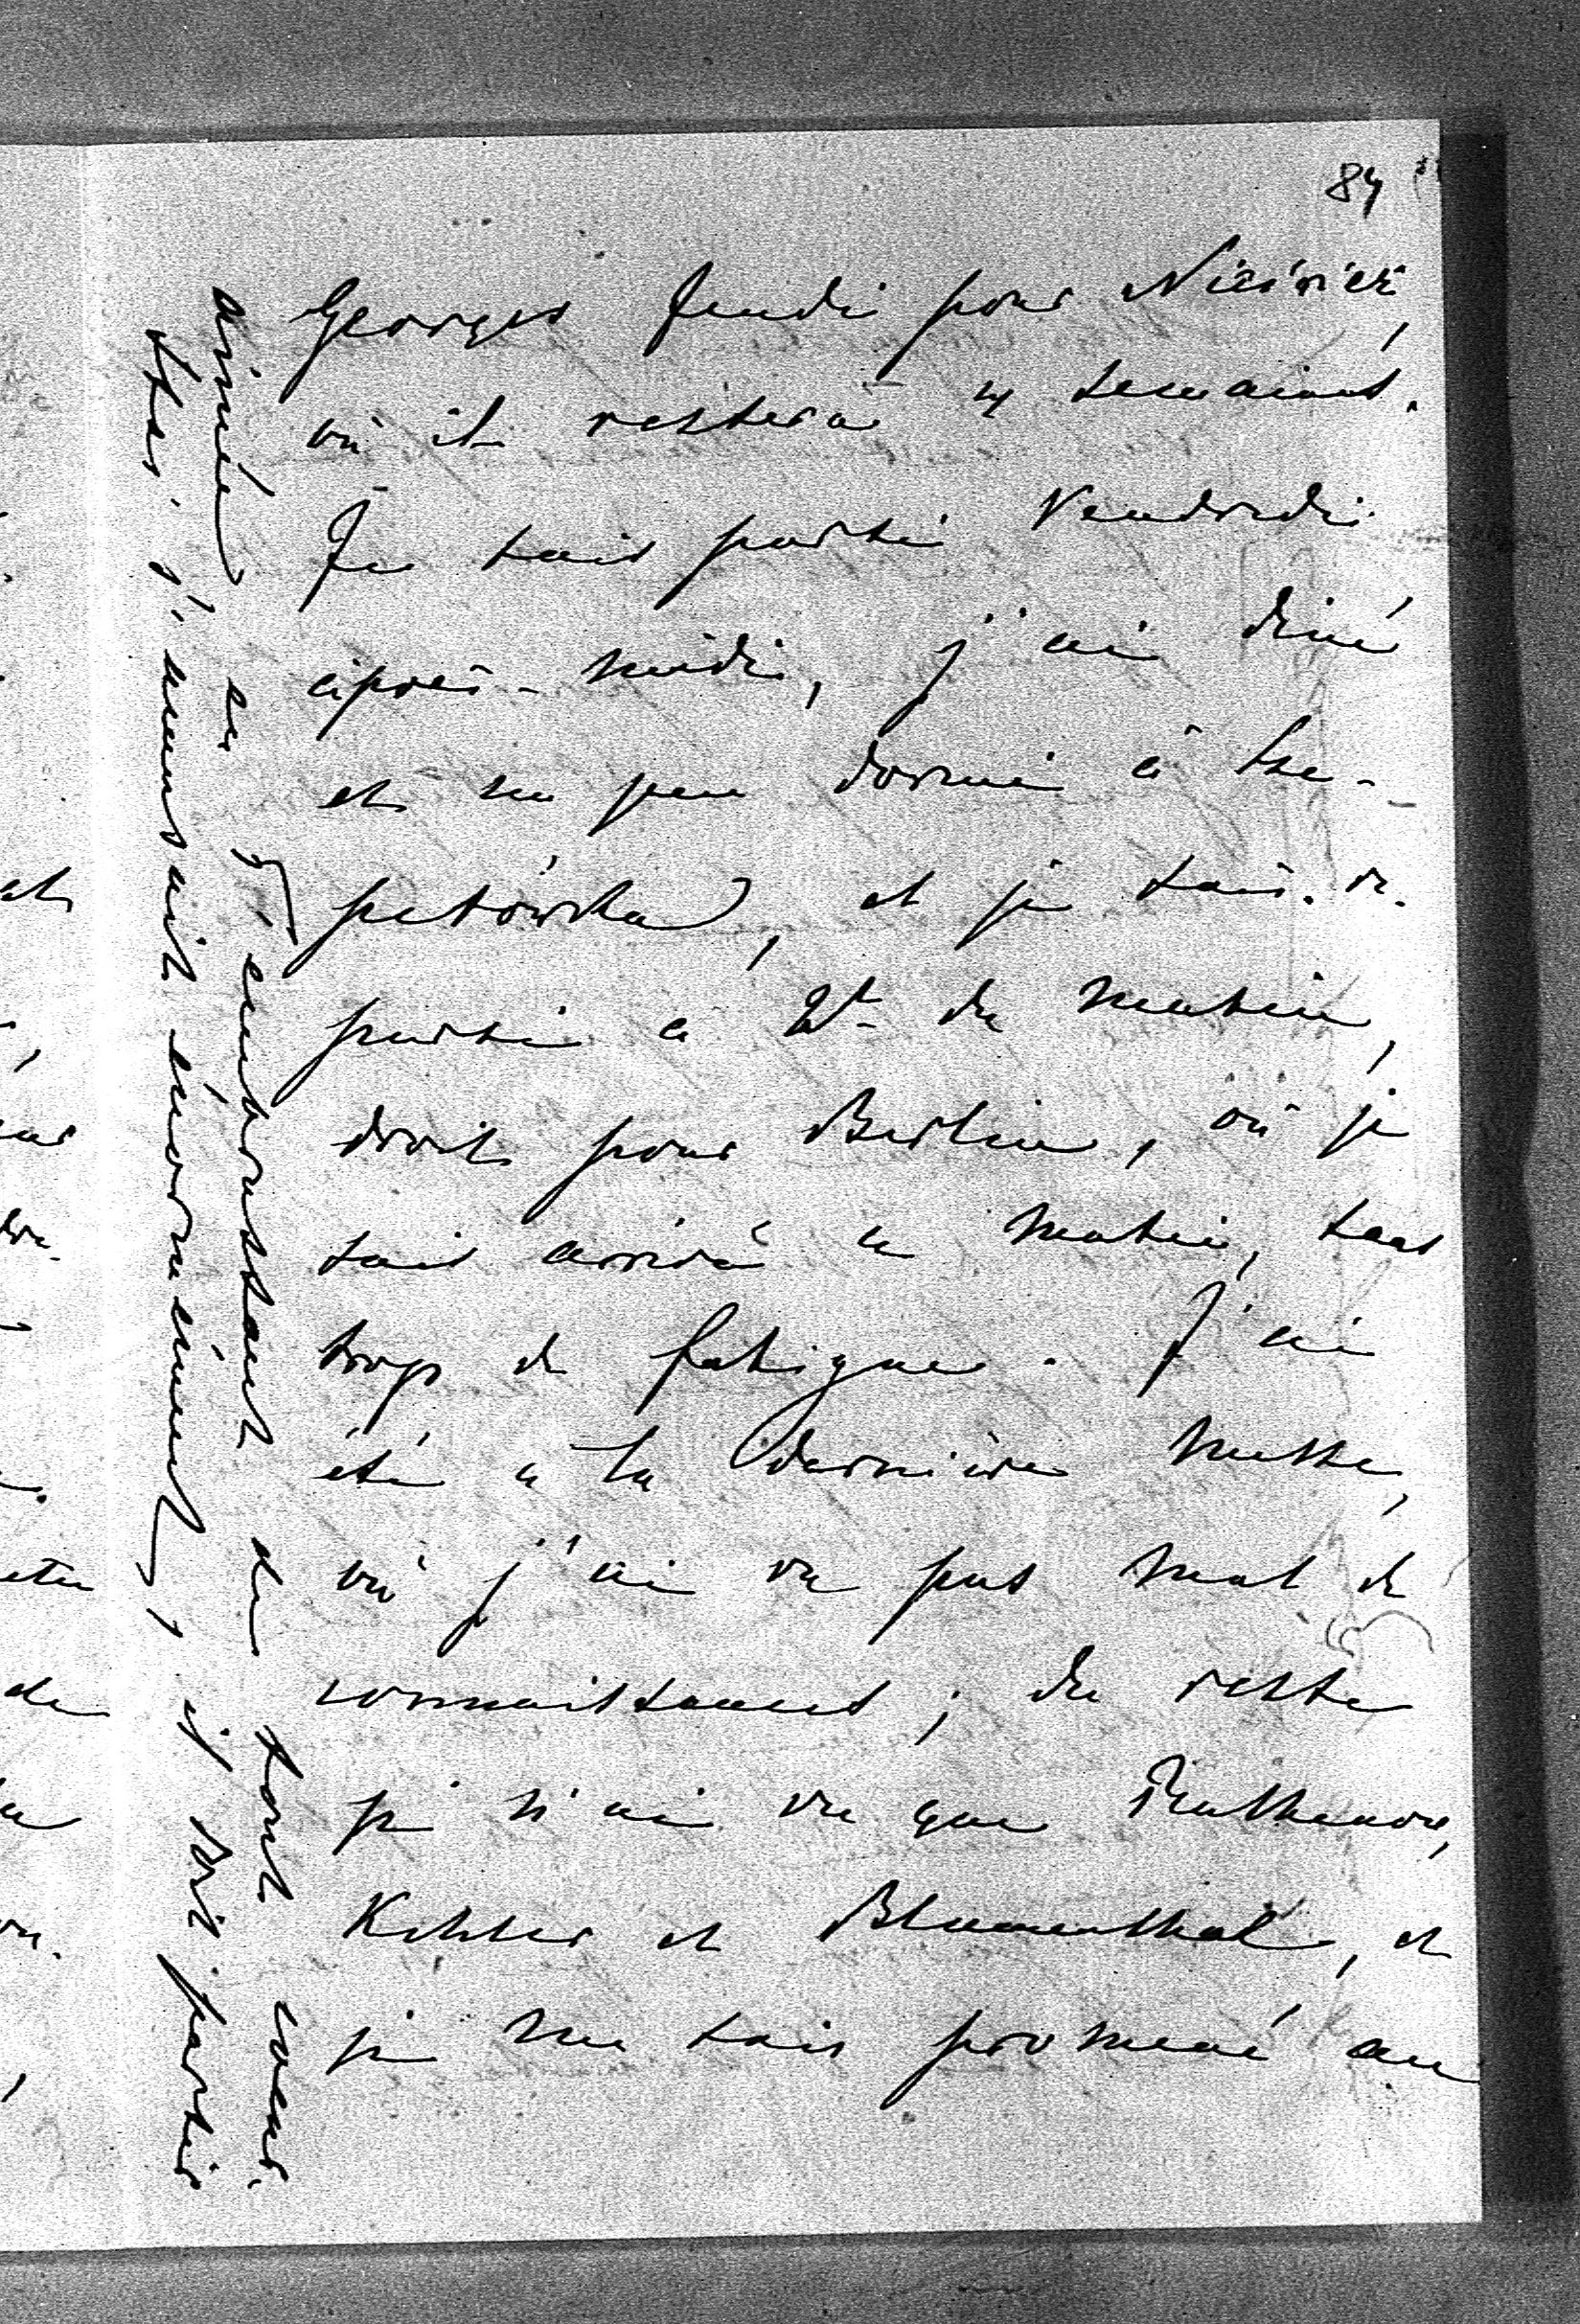 84
Georges Jeudi pour Nieśwież,
où il restera 4 semaines.
Je suis parti Vendredi
après-midi, j'ai diné
et un peu dormi à Sze-
petówka, et je suis r.
parti à 2h du matin,
droit pour Berlin, où je
suis arrivé ce matin, sans
trop de fatigue. J'ai
été à la dernière messe,
où j'ai vu pas mal de
connaissances; du reste
je n'ai vu que Rathenow,
Kohler et Blumenthal, et
je me suis promené au
aimée, en t'embrassant de tout cœur.
Stas' s'amusait énormément, et doit partir